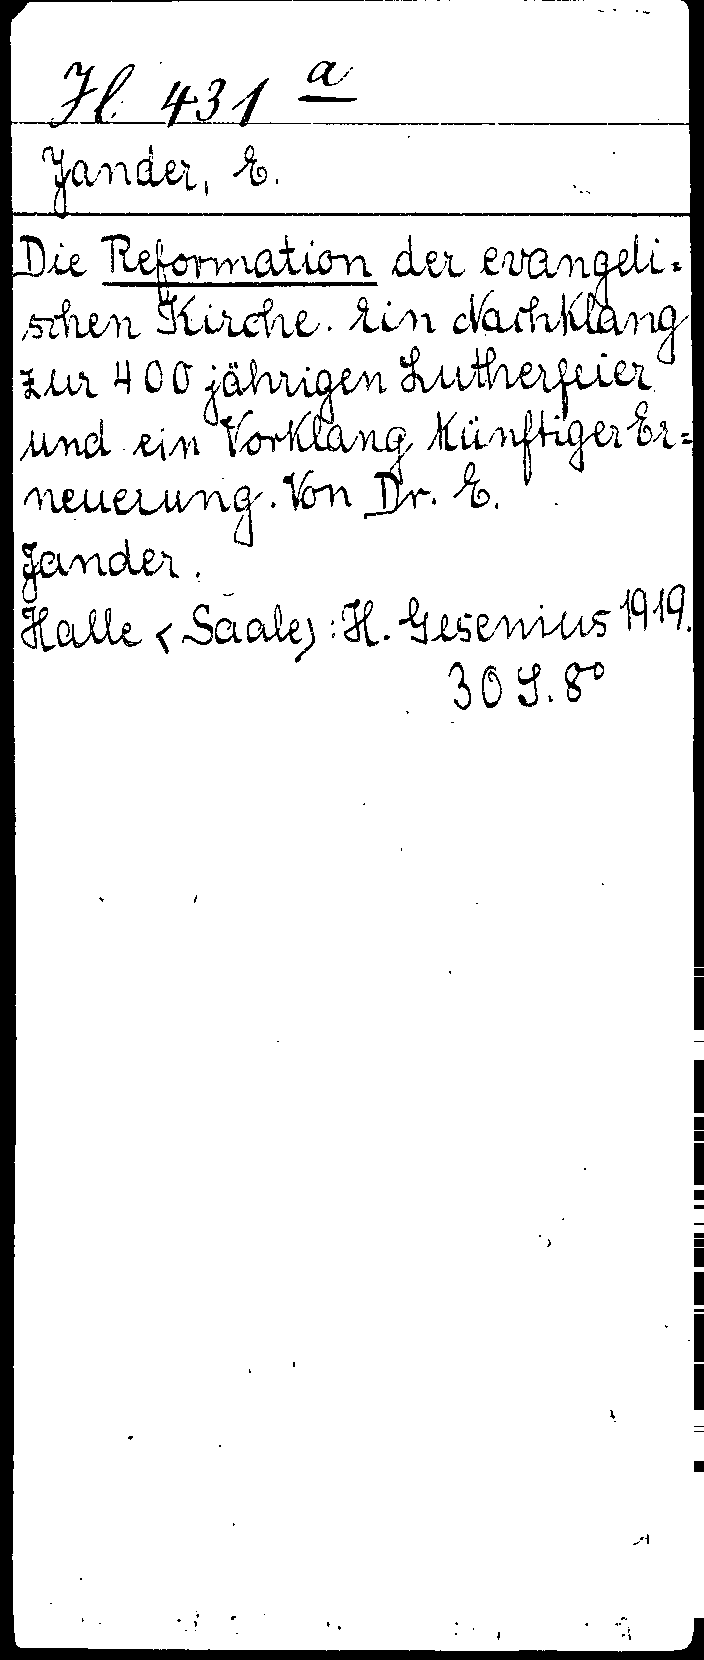 Jl 431 a
Jander, E.
Die Reformation der evangeli=
schen Kirche. Ein Nachklang
zur 400 jährigen Lutherfeier
und ein Vorklang künftiger Er=
neuerung. Von Dr. E.
Jander.
Halle (Saale): H. Gesenius 1919.
30 S. 8°